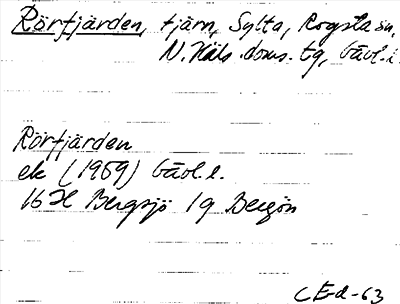 Rörfjärden, tjärn, Sylta, Rogsta sn,
N. Häls. doms. tg, Gävl. l.
Rörfjärden
ek (1959) Gävl. l.
16 H Bergsjö 1 g Bergön
CEd-63